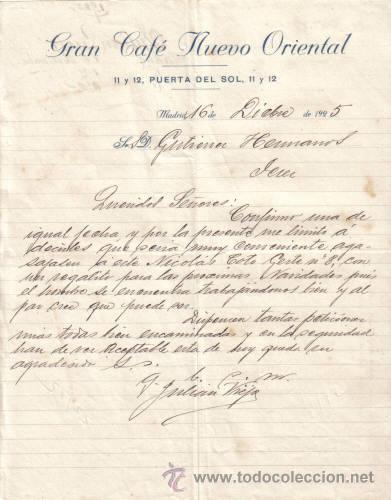 Gran Café Nuevo Oriental
11 y 12, PUERTA DEL SOL, 11 y 12
Madrid 16 de Dicbre de 1905
Sr. D. Gutierrez Hermanos
Jerez
Queridos Señores:
Confirmo una de
igual fecha y por la presente me limito á
decirles que seria muy conveniente aga-
sajasen a este Nicolás Coto Corte nº 8, con
un regalito para las proximas Navidades pues
el hombre se encuentra trabajandonos bien y al
par creo que puede ser.
Dispensen tantas peticiones
mias todas bien encaminadas y en la seguridad
han de ver aceptable esta de hoy queda su
agradecido S. s.
q. b. s. m.
Julian Vieja
todocoleccion
www.todocoleccion.net